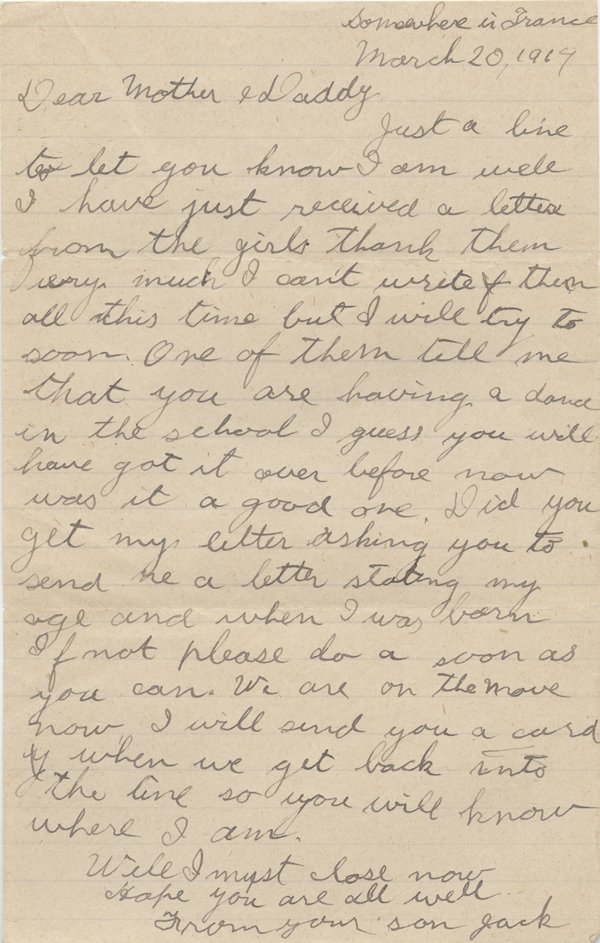 Somewhere in France
March 20, 1917
Dear Mother & Daddy
Just a line
to let you know I am well
I have just received a letter
from the girls thank them
very much I can't write them
all this time but I will try to
soon. One of them tell me
that you are having a dance
in the school I guess you will
have got it over before now
was it a good one. Did you
get my letter asking you to
send me a letter stating my
age and when I was born
If not please do a soon as
you can. We are on the move
now I will send you a card
when we get back into
the line so you will know
where I am.
Well I must close now
Hope you are all well
From your son Jack